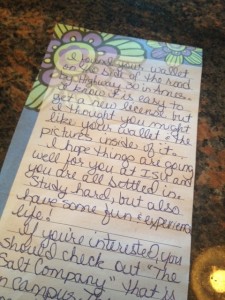 I found your wallet
on the side of the road
by Highway 30 in Ames.
I know it is easy to
get a new license but
I thought you might
like your wallet & the
pictures inside of it.
I hope things are going
well for you at ISU and
you are all settled in.
Study hard, but also
have some fun & experience
life!
If you're interested, you
should check out "The
Salt Company" that is
on campus